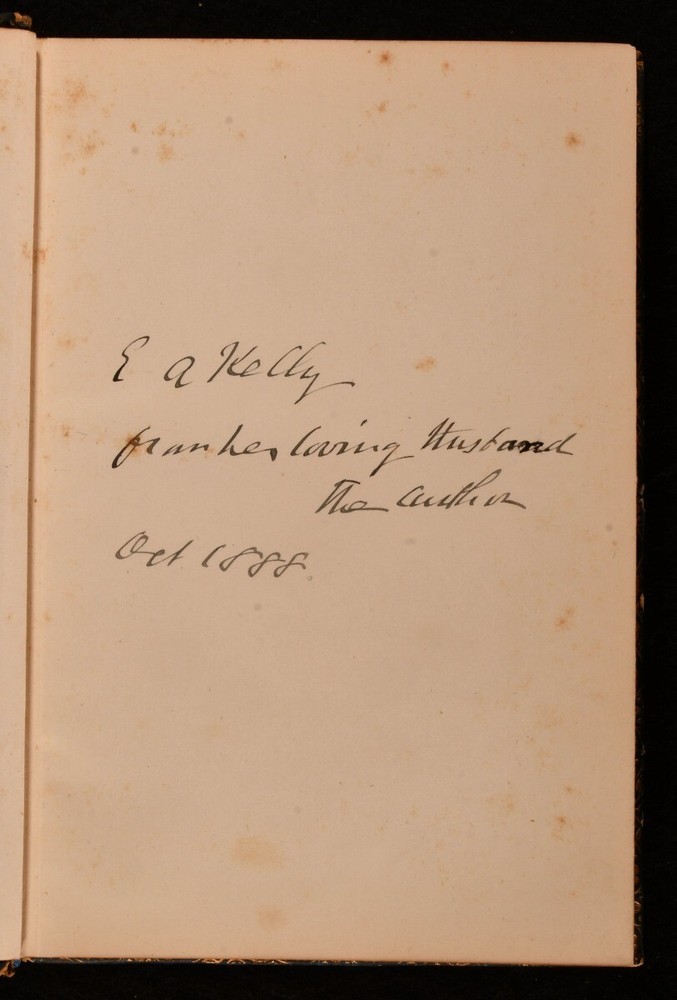 E A Kelly
from her loving Husband
the author
Oct 1888.